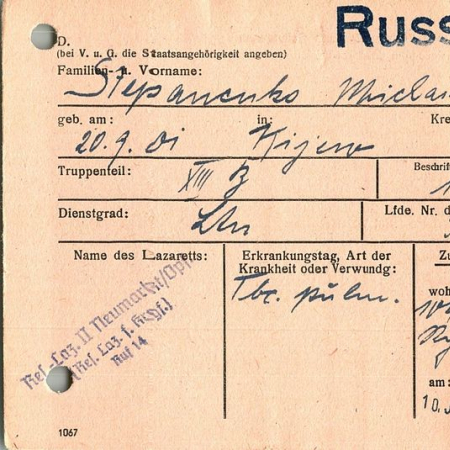 Russ
D.
(bei V. u. G. die Staatsangehörigkeit angeben)
Familien- u. Vorname:
Stepanenko
geb. am: in: Kre
20.9.01 Kijew
Truppenteil: Beschrift
XIII B
Dienstgrad: Lfde. Nr. d
Name des Lazaretts: Erkrankungstag, Art der Krankheit oder Verwundg: Zu
Tbc. pulm.
woh
Res.-Laz. II Neumarkt/Opf.
(Res. Laz. f. Kgf.)
Ruf 14
am:
10.
1067